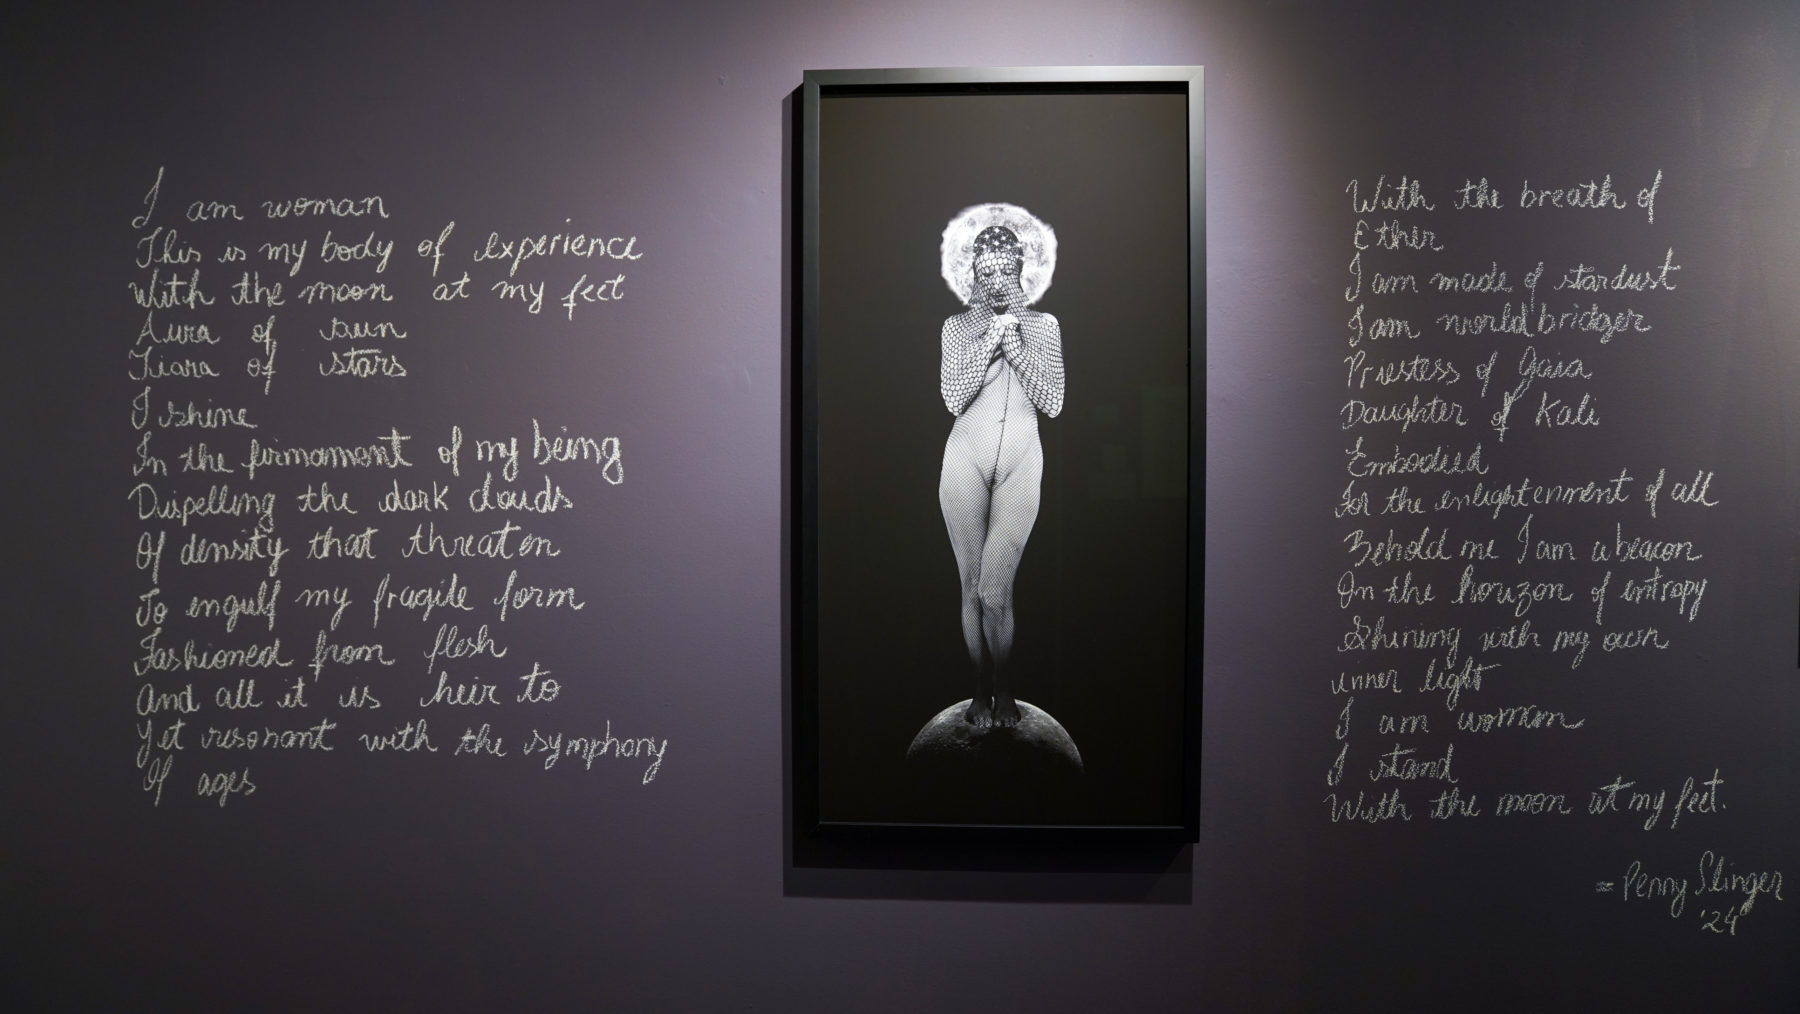 I am woman
This is my body of experience
With the moon at my feet
Aura of sun
Tiara of stars
I shine
In the firmament of my being
Dispelling the dark clouds
Of density that threaten
To engulf my fragile form
Fashioned from flesh
And all it is heir to
Yet resonant with the symphony
Of ages
With the breath of
Ether
I am made of stardust
I am world bridger
Priestess of Gaia
Daughter of Kali
Embodied
For the enlightenment of all
Behold me I am a beacon
On the horizon of entropy
Shining with my own
inner light
I am woman
I stand
With the moon at my feet.
= Penny Slinger
'24